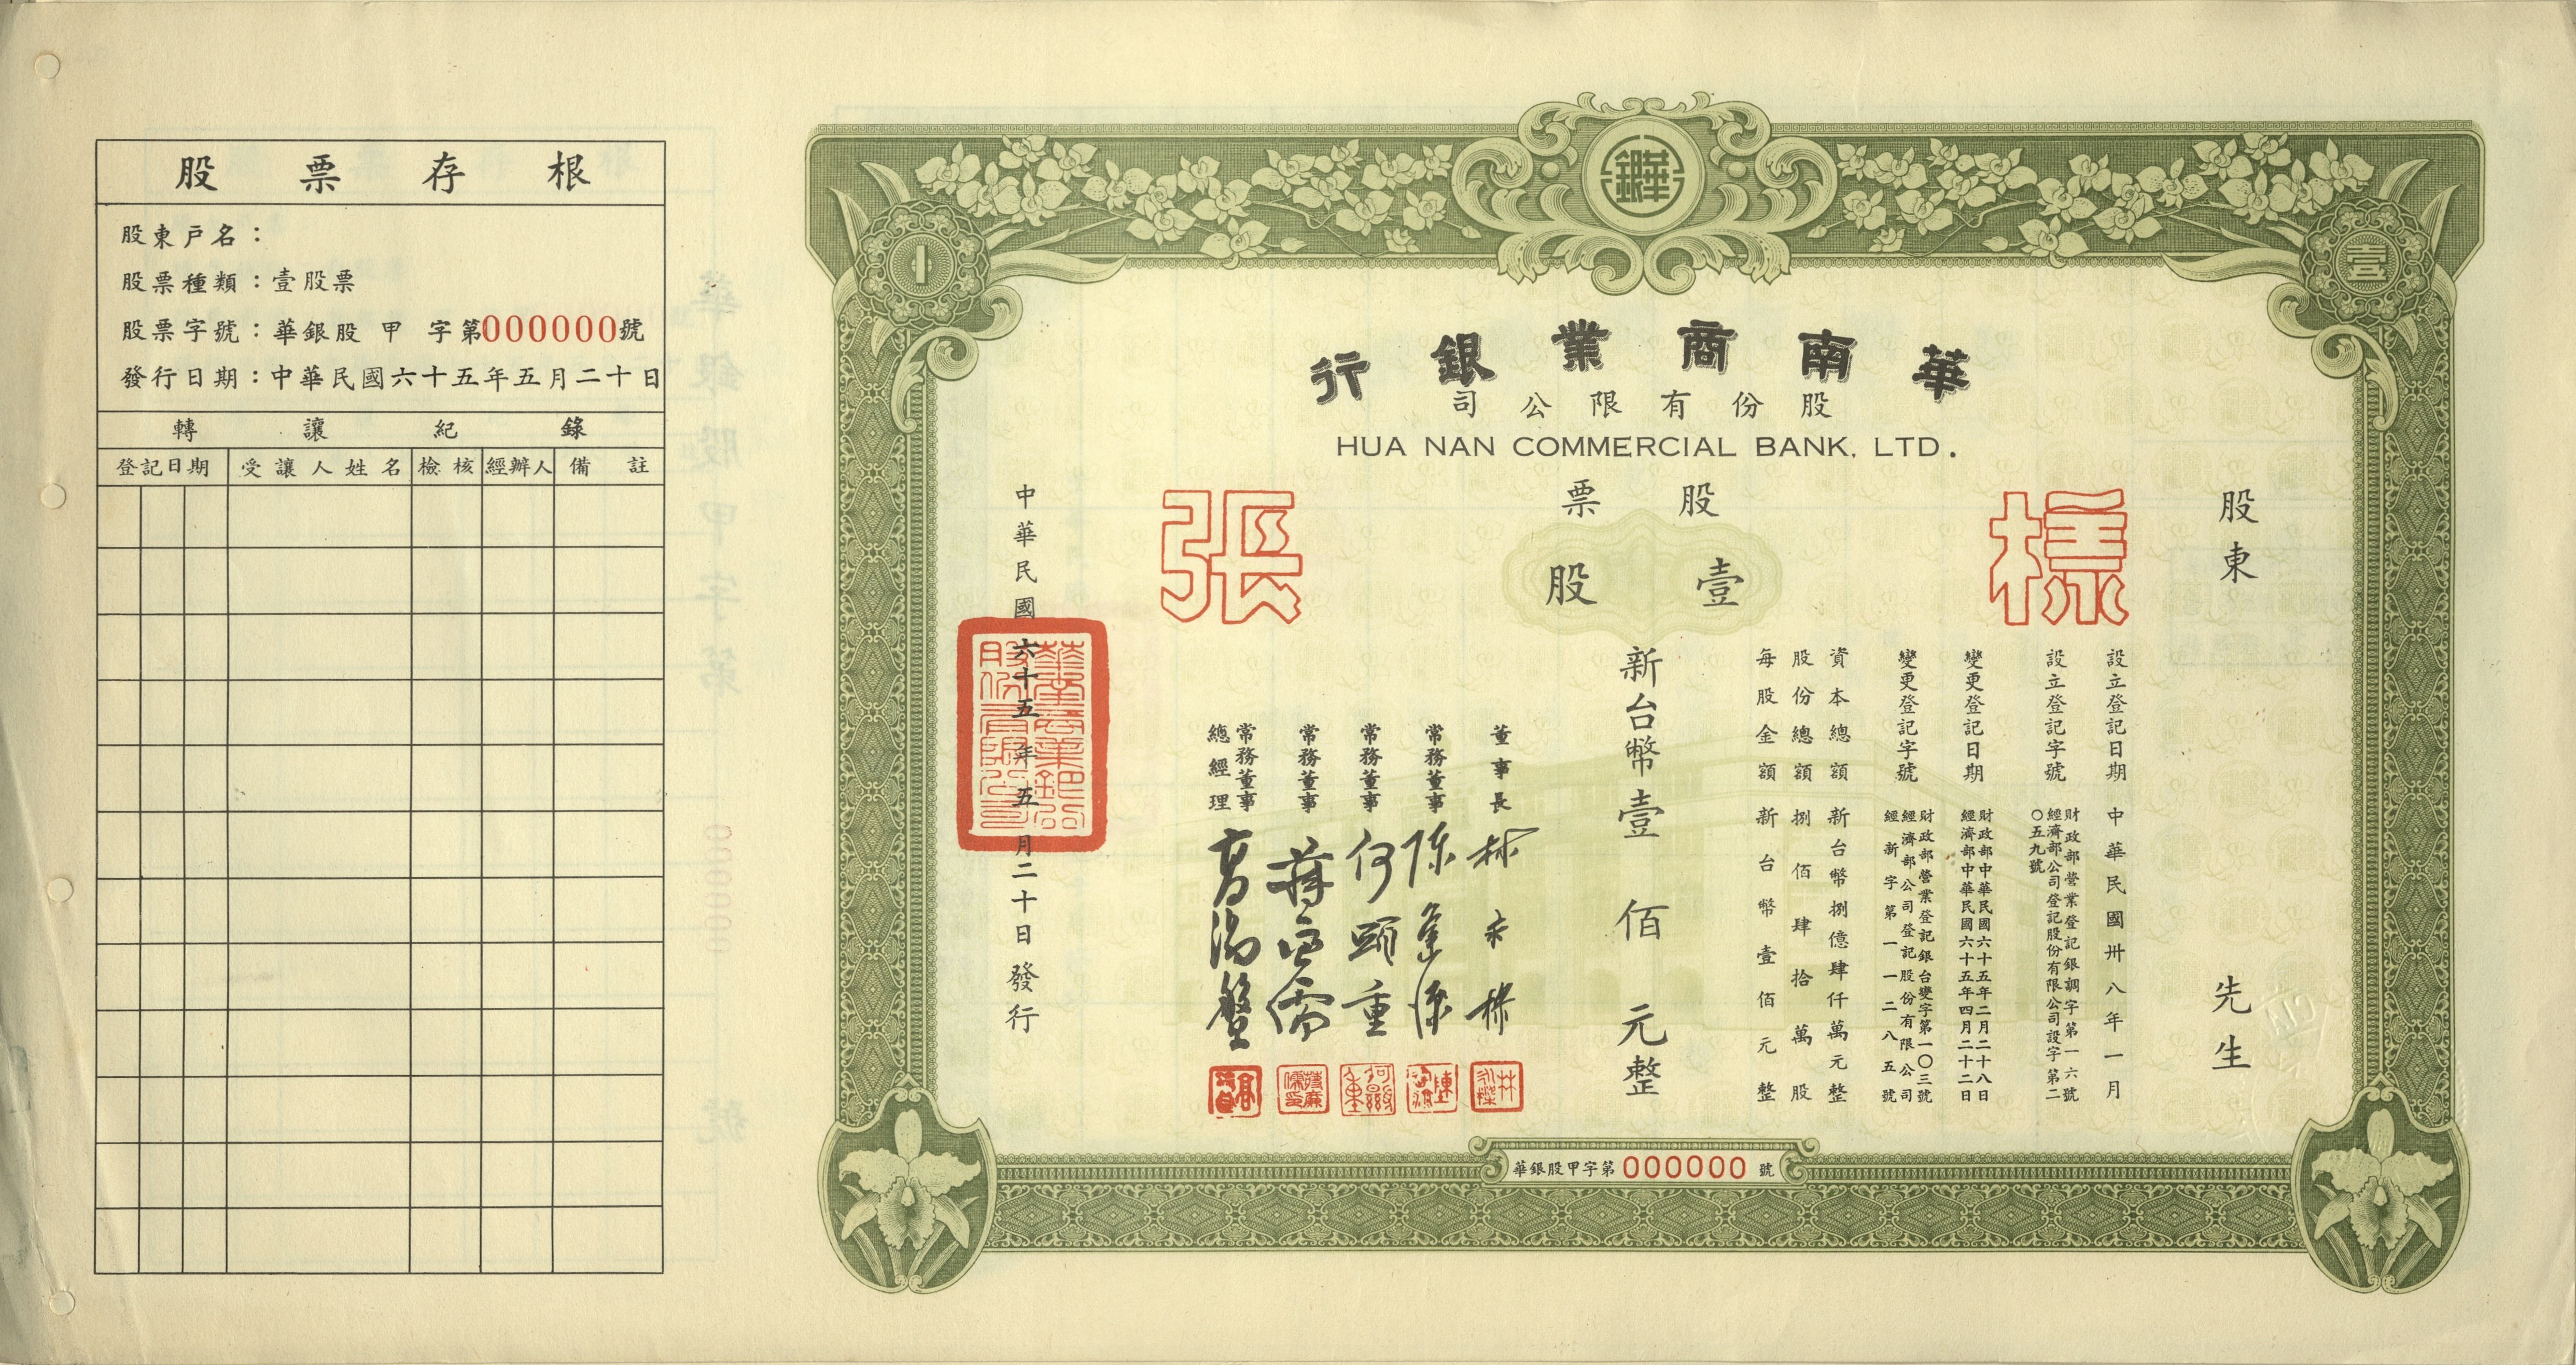 股票存根
股東戶名：
股票種類：壹股票
股票字號：華銀股 甲 字第000000號
發行日期：中華民國六十五年五月二十日
轉讓紀錄
登記日期 受讓人姓名 檢核 經辦人 備註
華銀
壹
華南商業銀行
股份有限公司
HUA NAN COMMERCIAL BANK, LTD.
股票
壹股
樣張
股東
先生
設立登記日期 中華民國卅八年一月
設立登記字號 財政部營業登記銀調字第一六號
經濟部公司登記股份有限公司設字第二〇五九號
變更登記日期 財政部中華民國六十五年二月二十八日
經濟部中華民國六十五年四月二十二日
變更登記字號 財政部營業登記銀台變字第一〇三號
經濟部公司登記股份有限公司
經新字第一一二八五號
資本總額 新台幣捌億肆仟萬元整
股份總額 捌佰肆拾萬股
每股金額 新台幣壹佰元整
新台幣壹佰元整
董事長 林永樑
常務董事
常務董事 何顯重
常務董事
常務董事
總經理
中華民國六十五年五月二十日發行
華南商業銀行股份有限公司
華銀股甲字第000000號